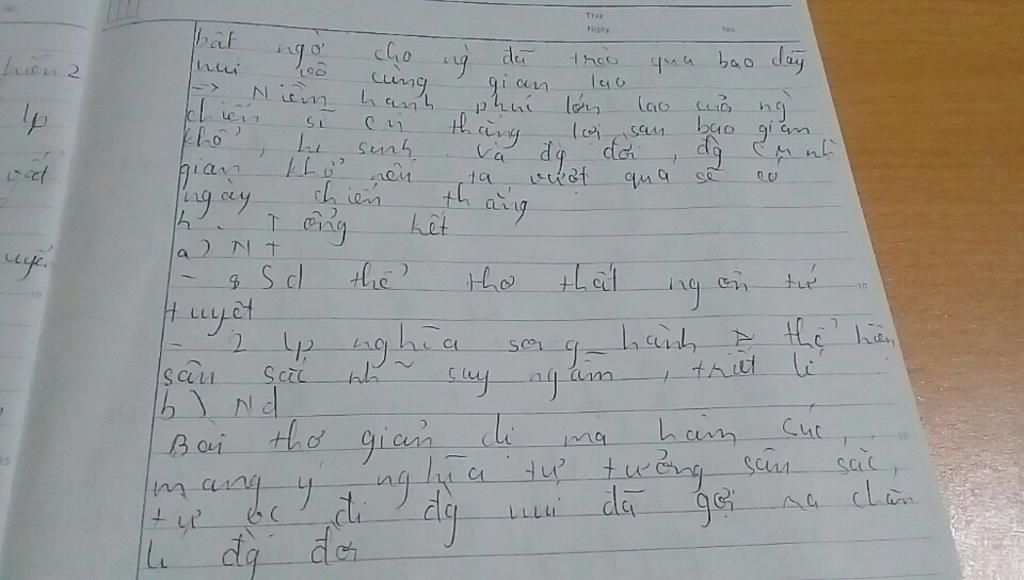 Thứ
Ngày
No.
bất ngờ cho ng đã trải qua bao dãy
núi vô cùng gian lao
-> Niềm hạnh phúc lớn lao của ng
chiến sĩ cm thắng lợi sau bao gian
khổ, hi sinh. Và đg đời, đg cm nh
gian khổ nếu ta vượt qua sẽ có
ngày chiến thắng
h. Tổng kết
a) NT
- Sd thể thơ thất ngôn tứ
tuyệt
- 2 lp nghĩa song hành -> thể hiện
sâu sắc nh~ suy ngẫm, triết lí
b) Nd
Bài thơ giản dị mà hàm súc,
mang ý nghĩa tư tưởng sâu sắc,
từ vc đi đg núi đã gợi ra chân
lí đg đời
hiên 2
lp
vất
uyế